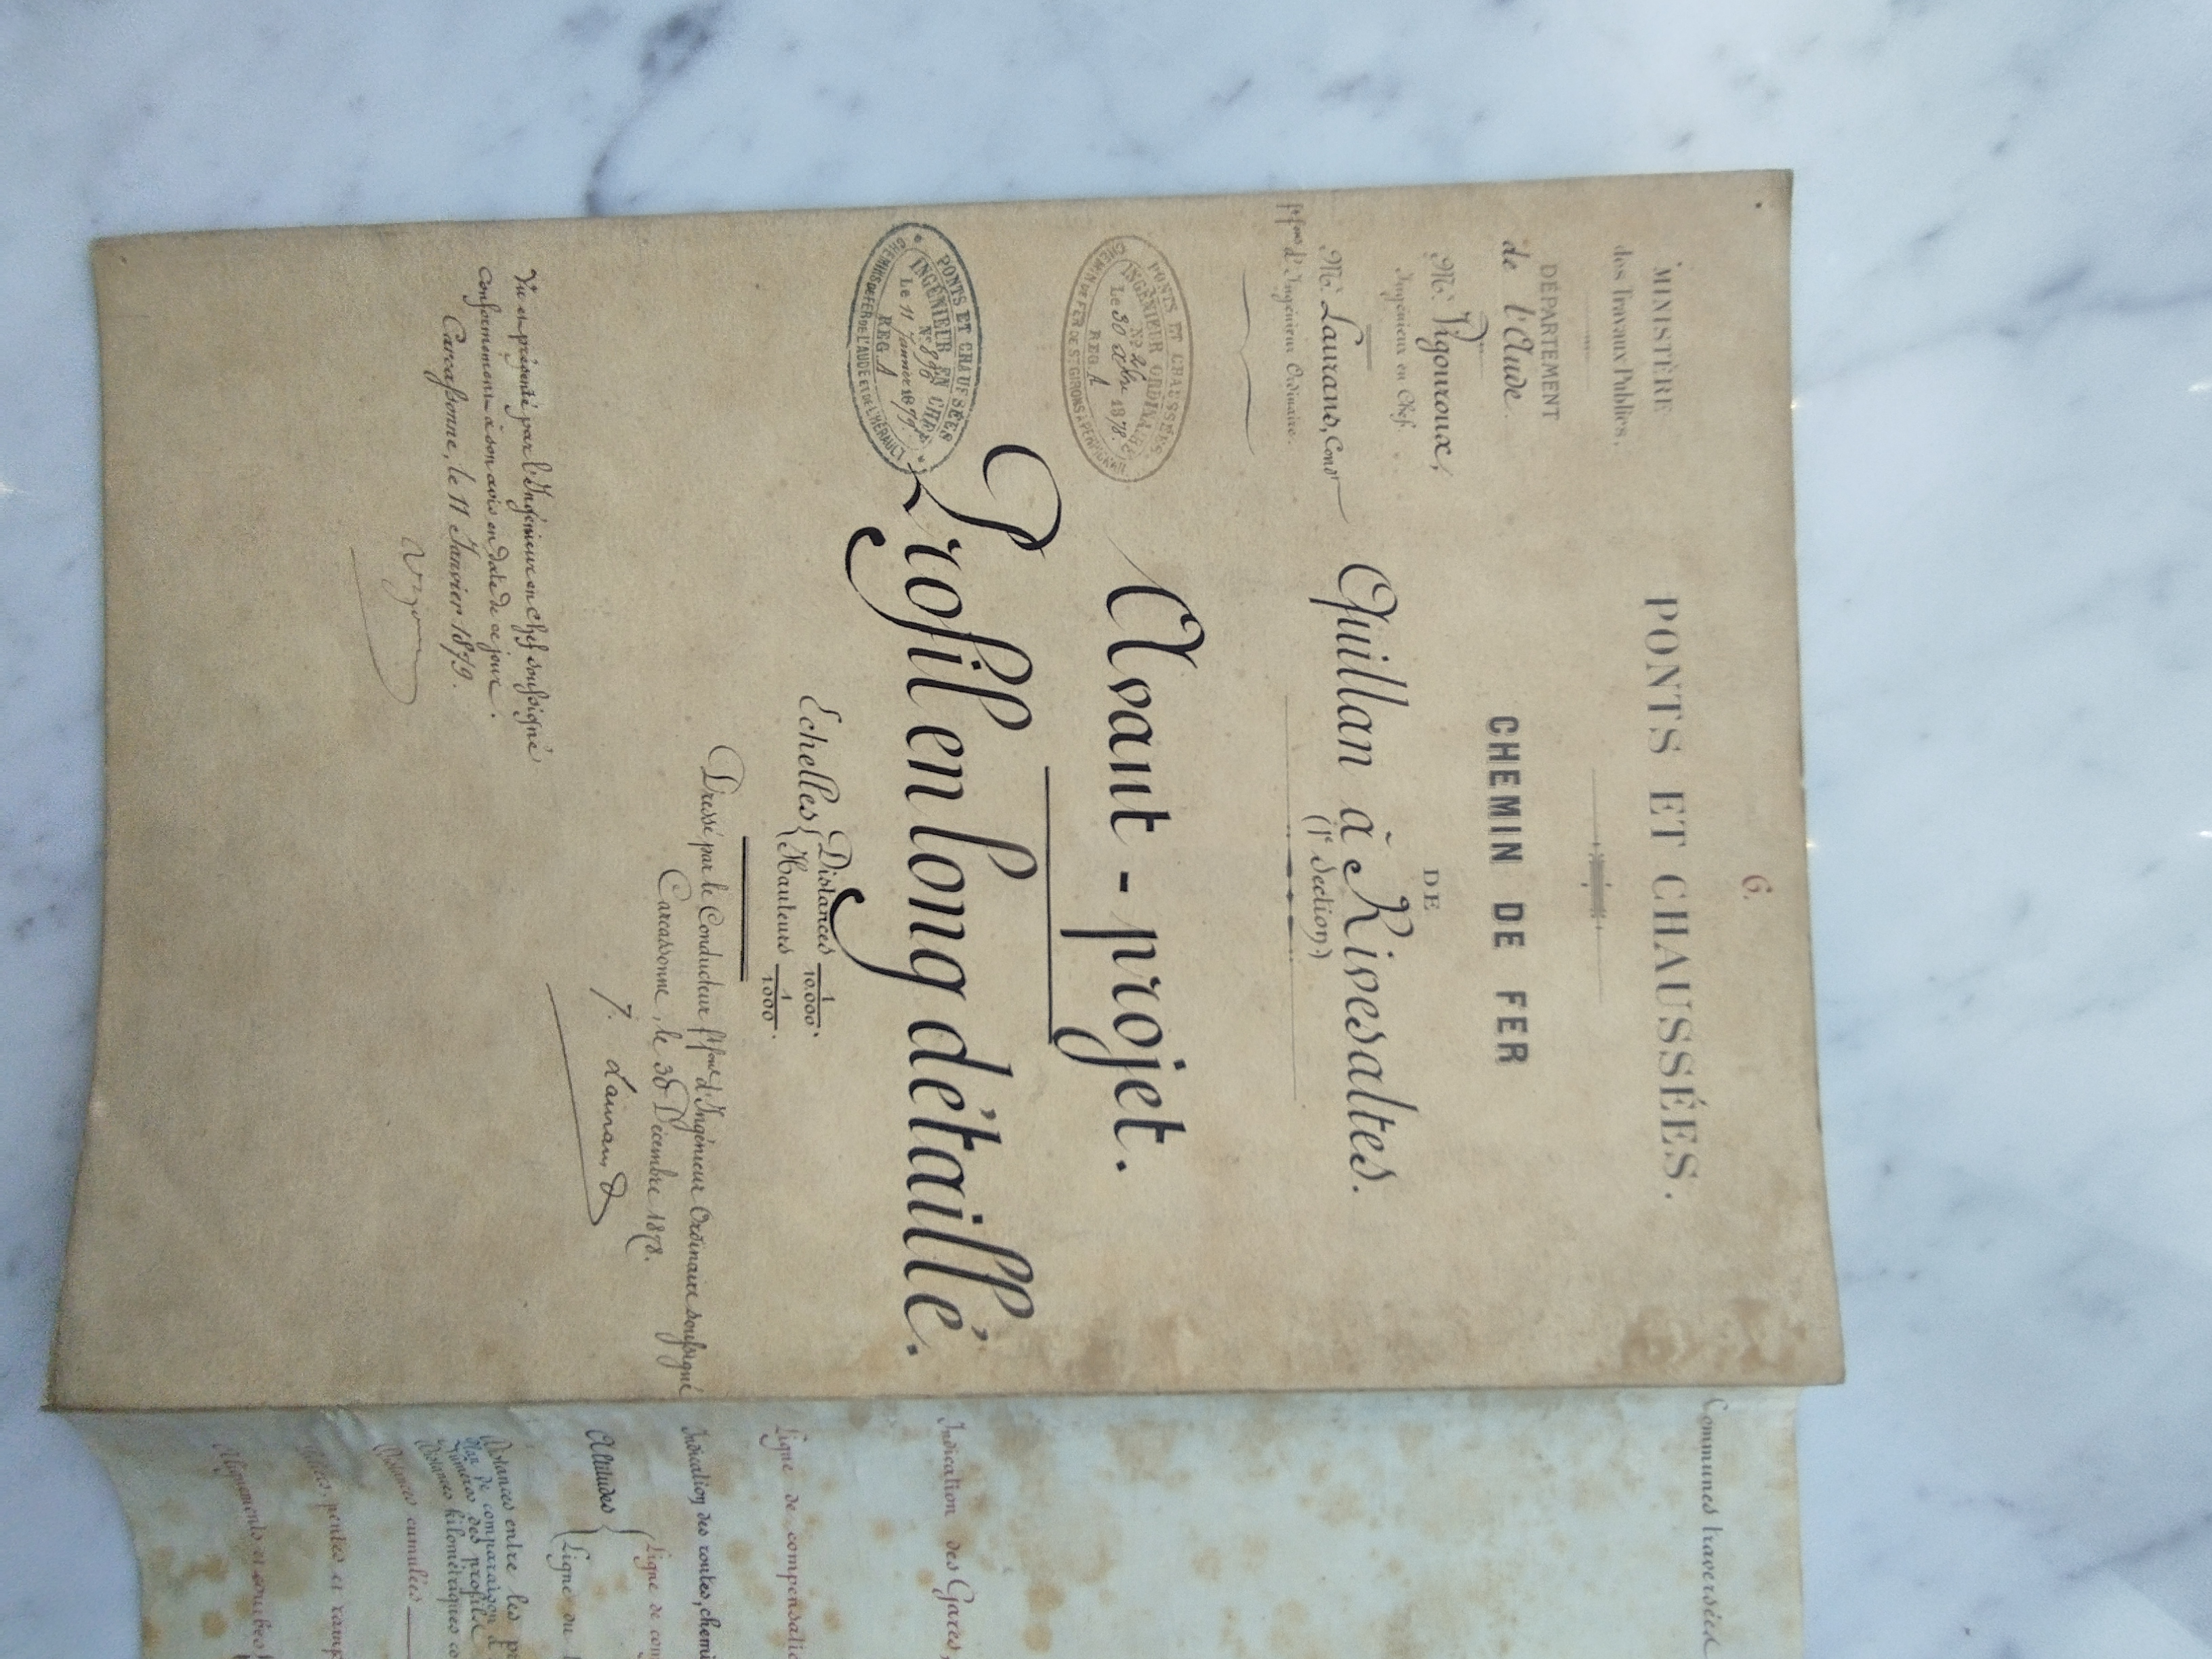 6.
MINISTÈRE
des Travaux Publics.
DÉPARTEMENT
de l'Aude.
Mr. Vigouroux,
Ingénieur en Chef.
Mr. Laurans, Condr
fsant fons d'Ingénieur Ordinaire.
PONTS ET CHAUSSÉES.
CHEMIN DE FER
DE
Quillan à Rivesaltes.
(1e Section)
PONTS ET CHAUSSÉES
INGÉNIEUR ORDINAIRE
Le 30 Xbre 1878.
REG. A
CHEMIN DE FER DE ST GIRONS À PERPIGNAN
Avant - projet.
PONTS ET CHAUSSÉES
INGÉNIEUR EN CHEF
No 896
Le 11 Janvier 1879.
REG. A
CHEMINS DE FER DE L'AUDE ET DE L'HÉRAULT
Profil en long détaillé.
Echelles { Distances 1/10.000.
Hauteurs 1/1000.
Dressé par le Conducteur fons d'Ingénieur Ordinaire soussigné
Carcassonne, le 30 Décembre 1878.
F. Laurans
Vu et présenté par l'Ingénieur en Chef soussigné
Conformément à son avis en date de ce jour.
Carcassonne, le 11 Janvier 1879.
Communes traversées
Indication des Gares,
Ligne de compensatio
Indication des routes, chemi
Altitudes { Ligne de com
Ligne du
Distances entre les pr
Plan de comparaison
Numéros des profils
Distances kilométriques
Distances cumulées
pentes et ramp
Alignements et courbes